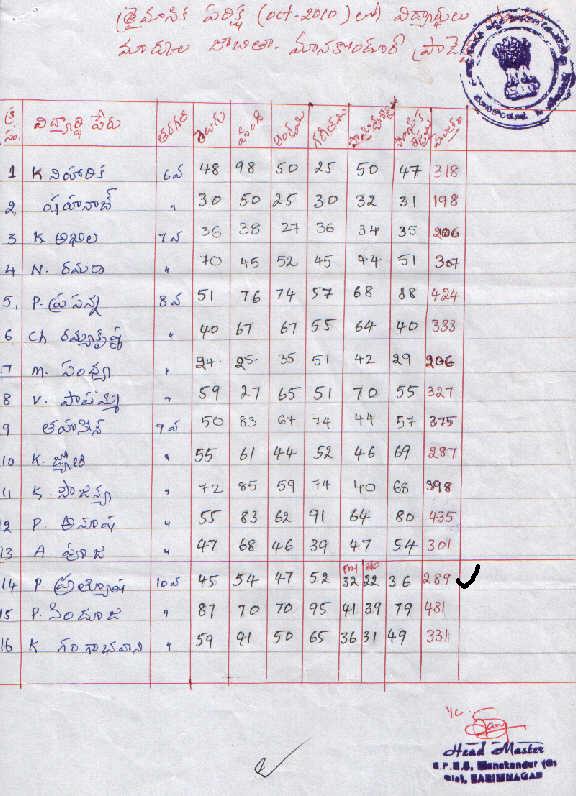 త్రైమాసిక పరీక్ష (oct-2010) లో విద్యార్థులు
మార్కుల జాబితా. మానకొండూర్
క్ర సం. విద్యార్థి పేరు తరగతి తెలుగు హింది ఆంగ్లము గణితము
1 K నిహారిక 6వ 48 98 50 25 50 47 318
2 షహనాజ్ " 30 50 25 30 32 31 198
3 K అఖిల 7వ 36 38 27 36 34 35 206
4 N. రమాదే " 70 45 52 45 44 51 307
5. P. ప్రసన్న 8వ 51 76 74 57 68 88 424
6 Ch " 40 67 67 55 64 40 333
7 M. సంధ్య " 24 25 35 51 42 29 206
8 V. పాపమ్మ " 59 27 65 51 70 55 327
9 తహసీన్ 9వ 50 83 67 74 44 57 375
10 K. జ్యోతి " 55 61 44 52 46 69 287
11 K. సౌజన్య " 72 85 59 74 40 68 398
12 P. అనూష " 55 83 62 91 64 80 435
13 A పూజ " 47 68 46 39 47 54 301
14 P ప్రత్యూష 10వ 45 54 47 52 32 22 36 289
15 P. సింధూజ " 87 70 70 95 41 39 79 481
16 K గంగాభవాని " 59 91 50 65 36 31 49 331
Head Master
Manakondur
Dist. KARIMNAGAR